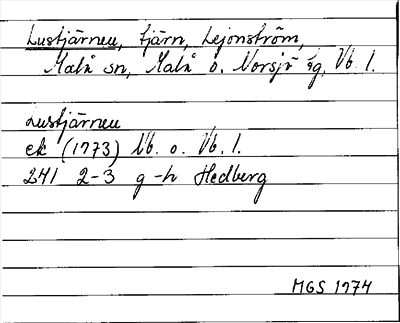 Lustjärnen, tjärn, Lejonström,
Malå sn, Malå o. Norsjö sg, Vb. l.
Lustjärnen
ek (1973) Nb. o. Vb. l.
241 2-3 g-h Hedberg
MGS 1974